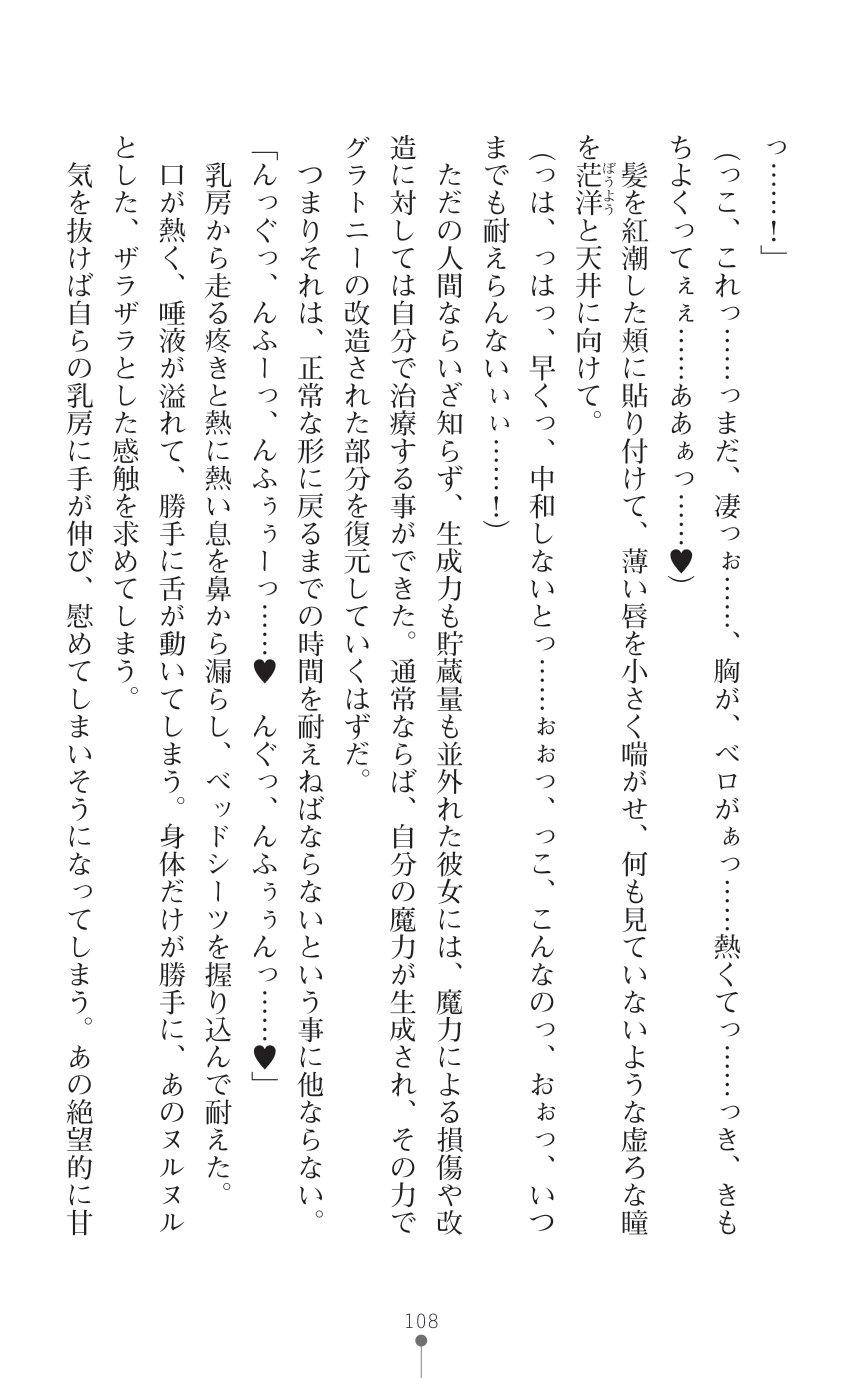 っ……！」
（っこ、これっ……っまだ、凄っぉ……、胸が、ベロがぁっ……熱くてっ……っき、きも
ちよくってぇぇ……ああぁっ……♥）
髪を紅潮した頬に貼り付けて、薄い唇を小さく喘がせ、何も見ていないような虚ろな瞳
を茫洋と天井に向けて。
ぼうよう
（っは、っはっ、早くっ、中和しないとっ……ぉぉっ、っこ、こんなのっ、おぉっ、いつ
までも耐えらんないぃぃ……！）
ただの人間ならいざ知らず、生成力も貯蔵量も並外れた彼女には、魔力による損傷や改
造に対しては自分で治療する事ができた。通常ならば、自分の魔力が生成され、その力で
グラトニーの改造された部分を復元していくはずだ。
つまりそれは、正常な形に戻るまでの時間を耐えねばならないという事に他ならない。
「んっぐっ、んふーっ、んふぅぅーっ……♥　んぐっ、んふぅぅんっ……♥」
乳房から走る疼きと熱に熱い息を鼻から漏らし、ベッドシーツを握り込んで耐えた。
口が熱く、唾液が溢れて、勝手に舌が動いてしまう。身体だけが勝手に、あのヌルヌル
とした、ザラザラとした感触を求めてしまう。
気を抜けば自らの乳房に手が伸び、慰めてしまいそうになってしまう。あの絶望的に甘
108